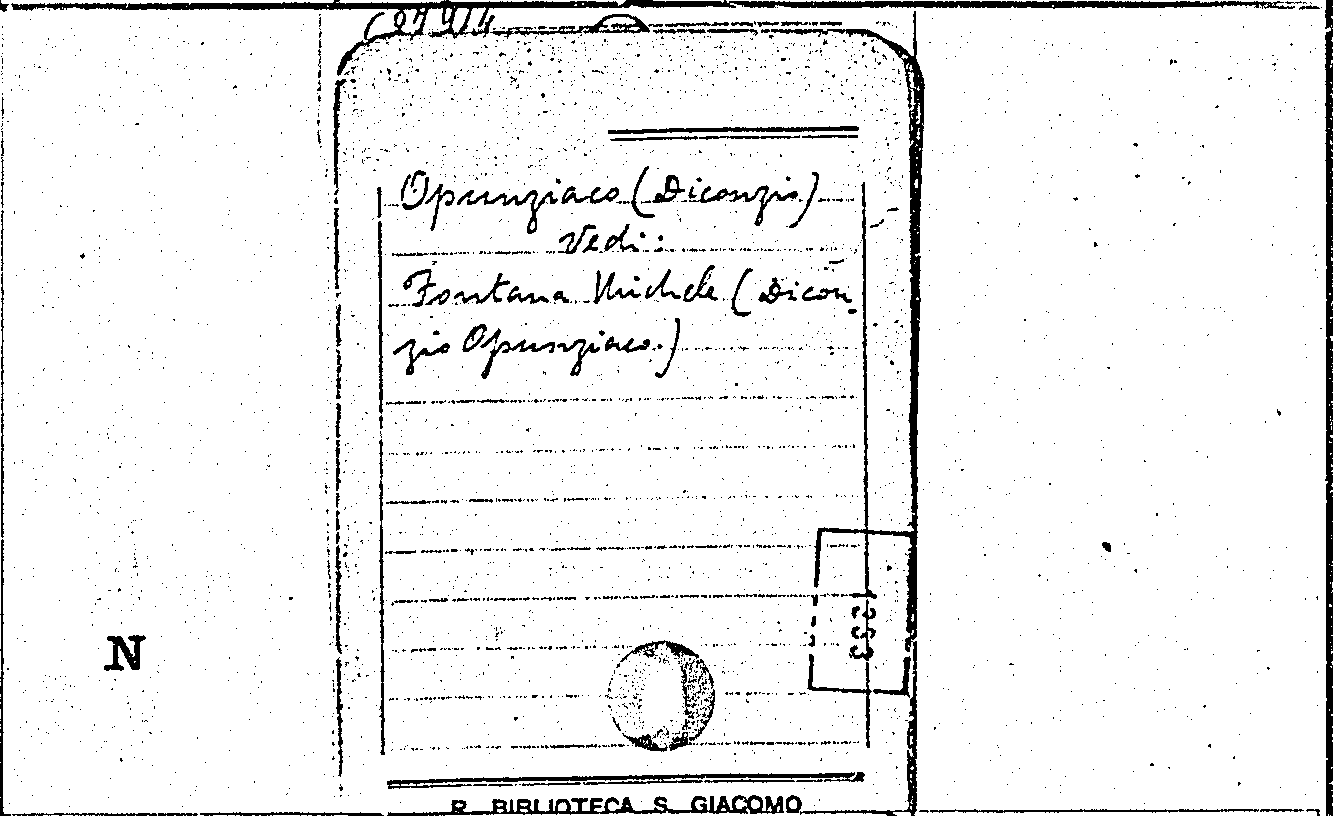 Opunziaco (Diconzio)
Vedi:
Fontana Michele (Dicon
zio Opunziaco.)
333
N
R. BIBLIOTECA S. GIACOMO